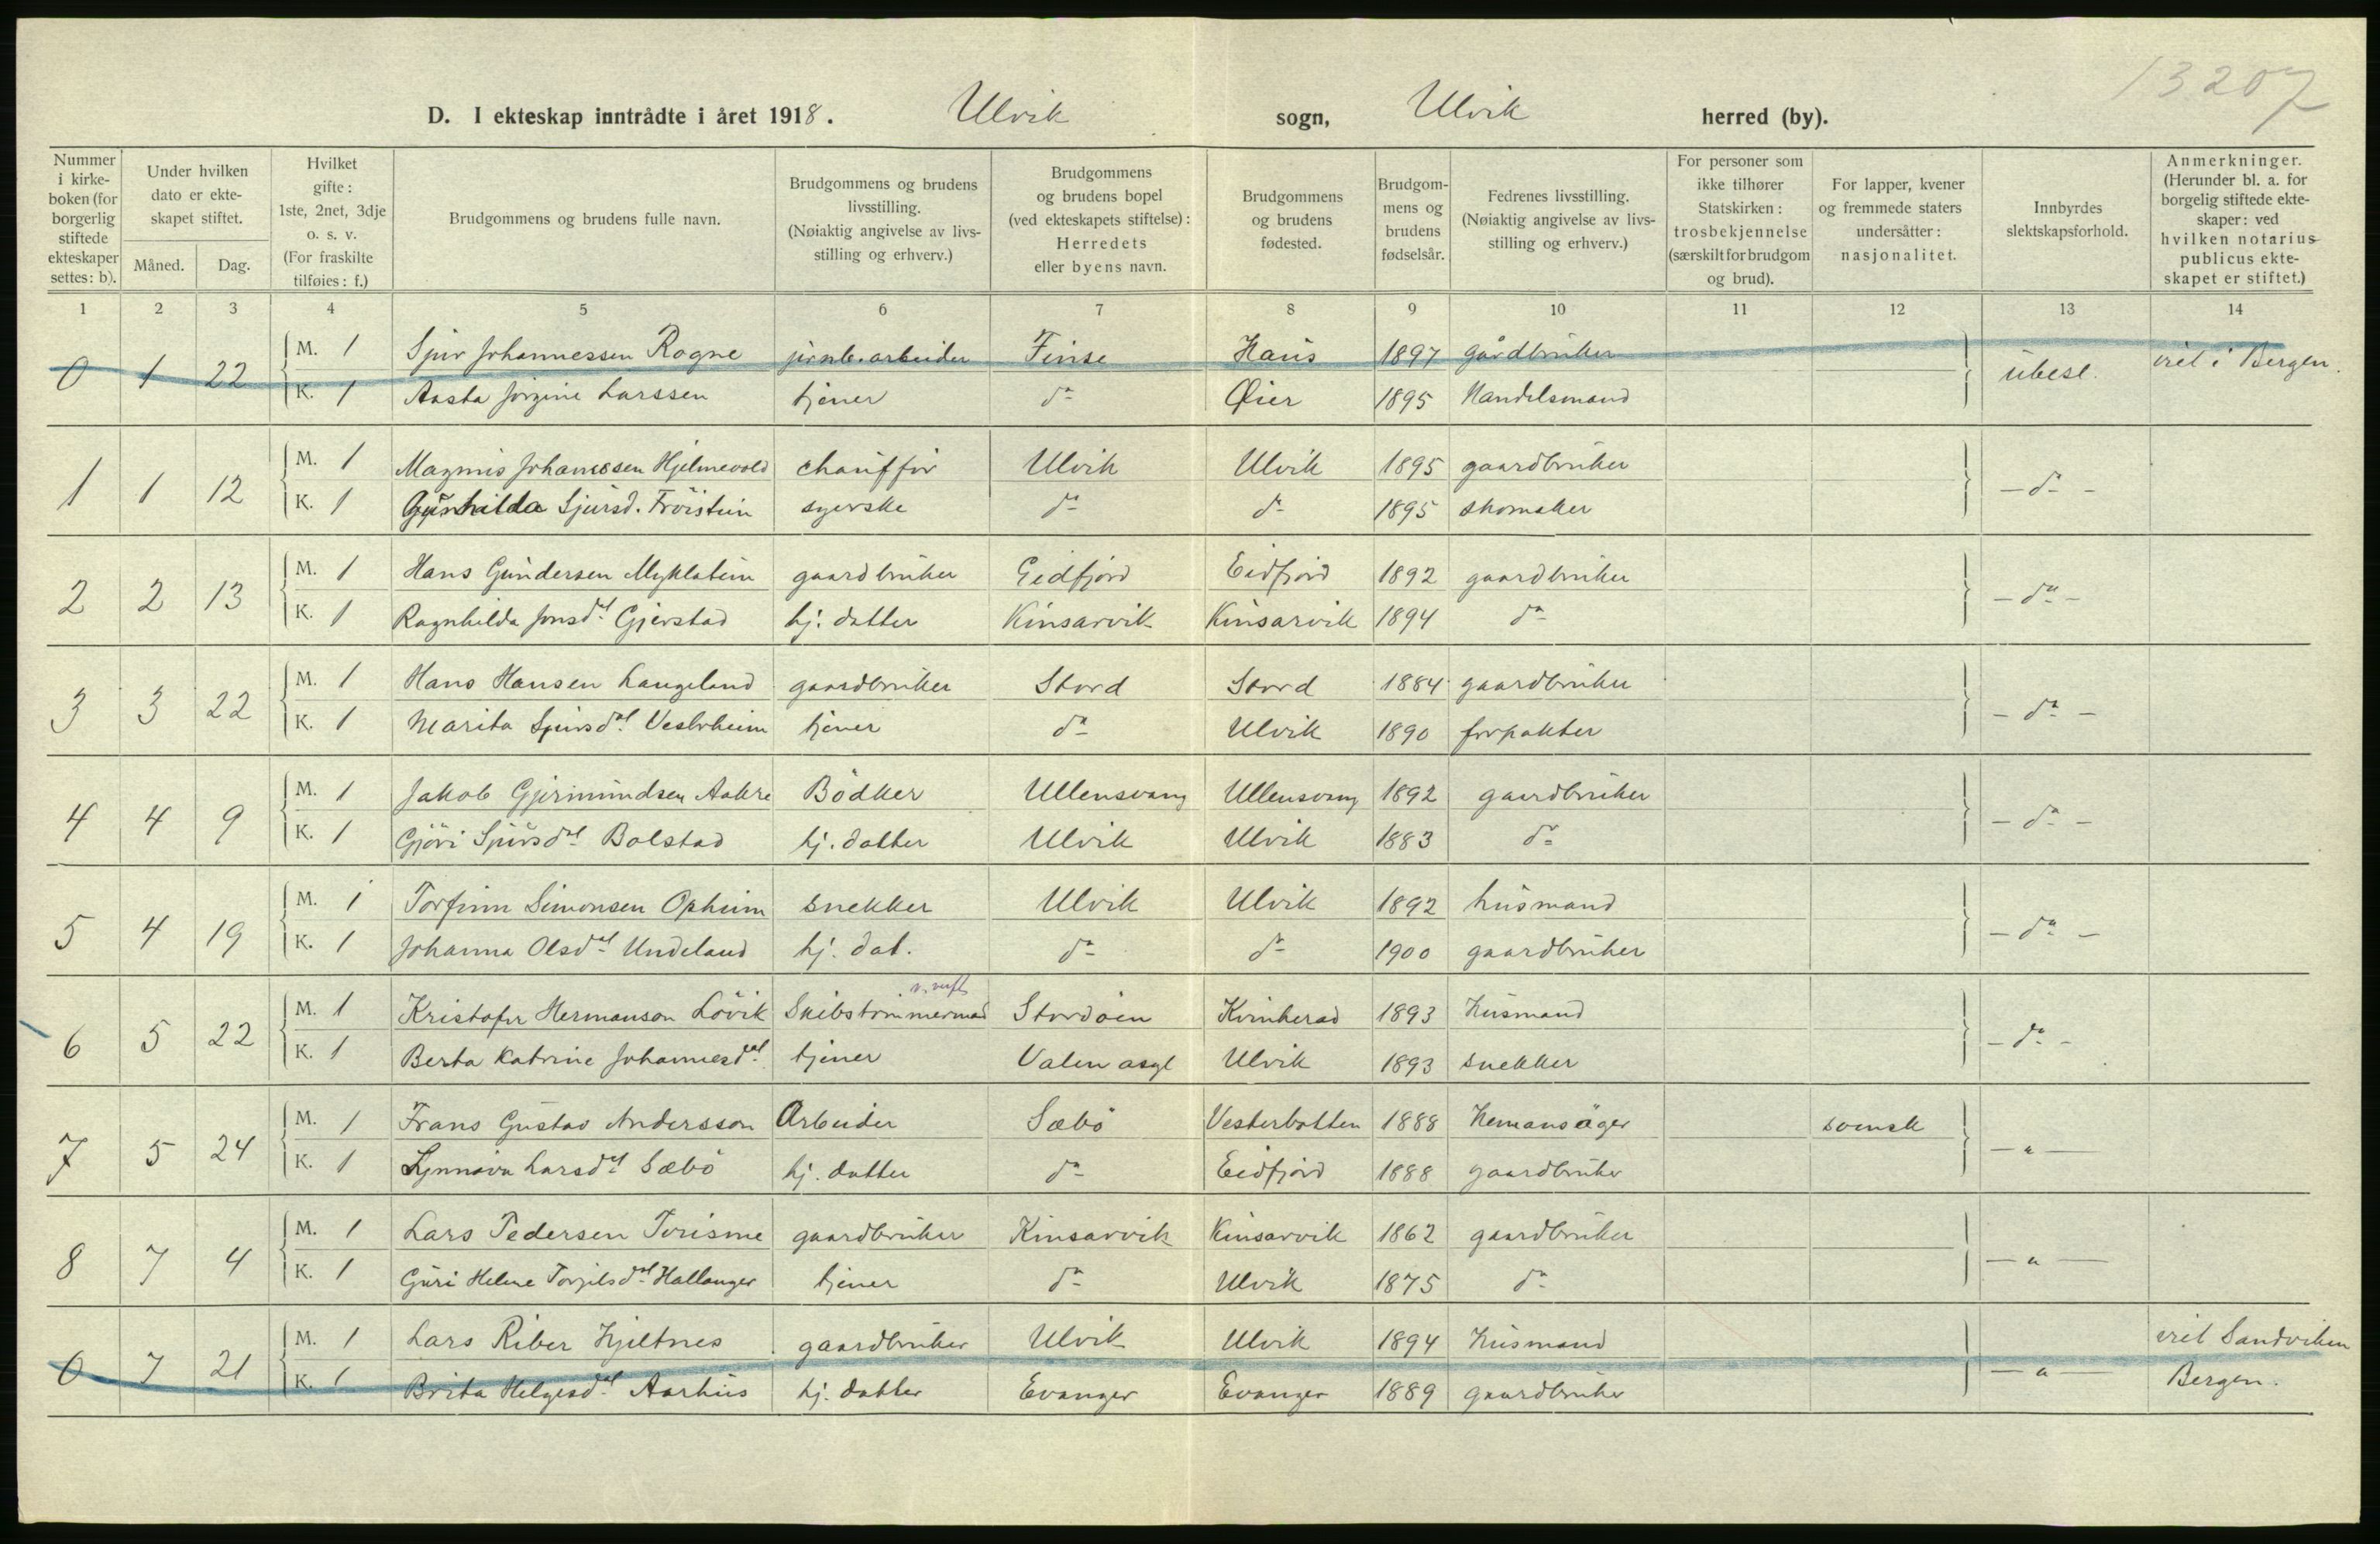 13207
D. I ekteskap inntrådte i året 1918. Ulvik sogn, Ulvik herred (by).
Nummer i kirke- boken (for borgerlig stiftede ekteskaper settes: b).
Under hvilken dato er ekte- skapet stiftet.
Måned. Dag.
Hvilket gifte: 1ste, 2net, 3dje o. s. v. (For fraskilte tilføies: f.)
Brudgommens og brudens fulle navn.
Brudgommens og brudens livsstilling. (Nøiaktig angivelse av livs- stilling og erhverv.)
Brudgommens og brudens bopel (ved ekteskapets stiftelse): Herredets eller byens navn.
Brudgommens og brudens fødested.
Brudgom- mens og brudens fødselsår.
Fedrenes livsstilling. (Nøiaktig angivelse av livs- stilling og erhverv.)
For personer som ikke tilhører Statskirken: trosbekjennelse (særskilt for brudgom og brud).
For lapper, kvener og fremmede staters undersåtter: nasjonalitet.
Innbyrdes slektskapsforhold.
Anmerkninger. (Herunder bl. a. for borgelig stiftede ekte- skaper: ved hvilken notarius publicus ekte- skapet er stiftet.)
1 2 3 4 5 6 7 8 9 10 11 12 13 14
0 1 22 M. 1 Sjur Johannessen Rogne jernb.arbeider Finse Haus 1897 gårdbruker ubesl. viet i Bergen.
K. 1 Aasta Jörgine Larssen tjener do Øier 1895 Handelsmand
1 1 12 M. 1 Magnus Johanessen Hjelmevold chaufför Ulvik Ulvik 1895 gaardbruker - do -
K. 1 Gunhilda Sjursd. Fröistein syerske do do 1895 skomaker
2 2 13 M. 1 Hans Gundersen Myklatun gaardbruker Eidfjord Eidfjord 1892 gaardbruker - do -
K. 1 Ragnhilda Jonsdt Gjerstad hj. datter Kinsarvik Kinsarvik 1894 do
3 3 22 M. 1 Hans Hansen Langeland gaardbruker Stord Stord 1884 gaardbruker - do -
K. 1 Marita Sjursdt. Vestrheim tjener do Ulvik 1890 forpakter
4 4 9 M. 1 Jakob Gjermundsen Aakre Bödker Ullensvang Ullensvang 1892 gaardbruker - do -
K. 1 Gjöri Sjursdt Bolstad hj. datter Ulvik Ulvik 1883 do
5 4 19 M. 1 Torfinn Simonsen Opheim snekker Ulvik Ulvik 1892 husmand - do -
K. 1 Johanna Olsdt Undeland hj. dat. do do 1900 gaardbruker
6 5 22 M. 1 Kristofer Hermanson Lövik Skibstömmermad Stordöen Kvinherad 1893 Husmand - do -
K. 1 Berta Katrine Johannesdt. tjener Valen asyl Ulvik 1893 snekker
7 5 24 M. 1 Frans Gustav Andersson Arbeider Sæbö Vesterbotten 1888 Hemansäger svensk - " -
K. 1 Synnöva Larsdt Sæbö hj. datter do Eidfjord 1888 gaardbruker
8 7 4 M. 1 Lars Pedersen Tvisme gaardbruker Kinsarvik Kinsarvik 1862 gaardbruker - " -
K. 1 Guri Helene Torgilsdt Hallanger tjener do Ulvik 1875 do
0 7 21 M. 1 Lars Riber Hjeltnes gaardbruker Ulvik Ulvik 1894 Husmand - " - viet Sandviken
K. 1 Brita Helgesdt Aarhus hj. datter Evanger Evanger 1889 gaardbruker Bergen.